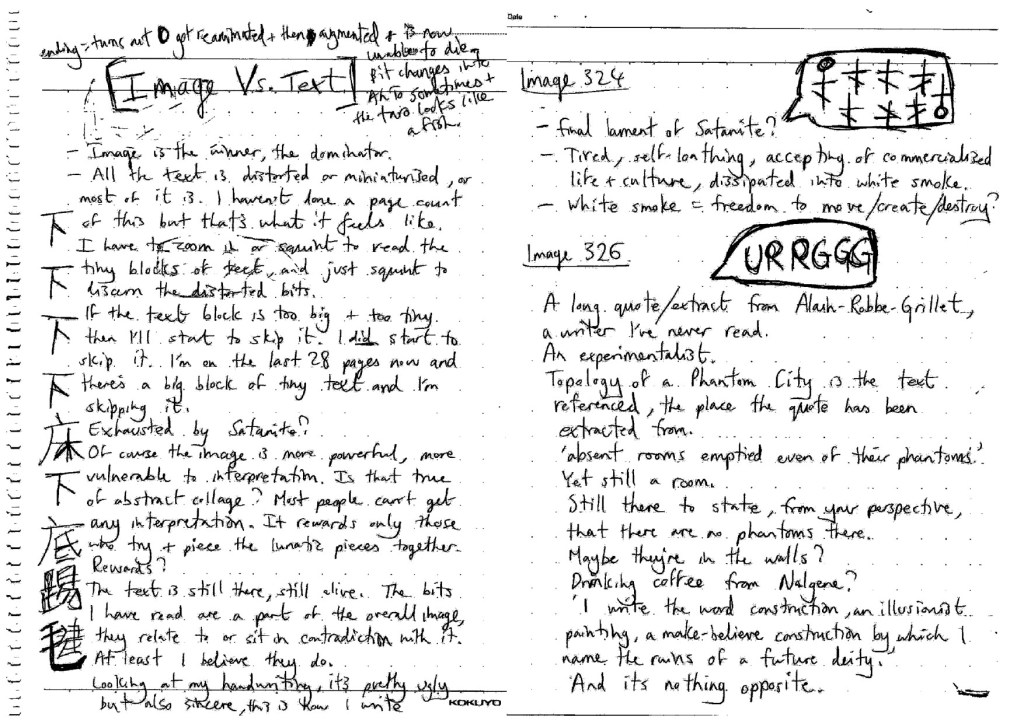 ending = turns out got reanimated + then augmented + is now
unable to die,
bit changes into
Ah to sometimes +
the two looks like
a fish.
[Image Vs. Text]
- Image is the winner, the dominator.
- All the text is distorted or miniaturised, or
most of it is. I haven't done a page count
of this but that's what it feels like.
I have to zoom in or squint to read the
tiny blocks of text, and just squint to
discern the distorted bits.
If the text block is too big + too tiny
then I'll start to skip it. I did start to
skip it. I'm on the last 28 pages now and
there's a big block of tiny text and I'm
skipping it.
Exhausted by Satanite?
Of course the image is more powerful, more
vulnerable to interpretation. Is that true
of abstract collage? Most people can't get
any interpretation. It rewards only those
who try + piece the lunatic pieces together.
Rewards?
The text is still there, still alive. The bits
I have read are a part of the overall image,
they relate to or sit in contradiction with it.
At least I believe they do.
Looking at my handwriting, it's pretty ugly
but also sincere, this is how I write
下
下
下
下
床
下
底
踢
毽
KOKUYO
Date
Image 324
- Final lament of Satanite?
- Tired, self-loathing, accepting of commercialised
life + culture, dissipated into white smoke.
- White smoke = freedom to move/create/destroy?
Image 326
URRGGG
A long quote/extract from Alain-Robbe-Grillet,
a writer I've never read.
An experimentalist.
Topology of a Phantom City is the text
referenced, the place the quote has been
extracted from.
'absent rooms emptied even of their phantoms.'
Yet still a room.
Still there to state, from your perspective,
that there are no phantoms there.
Maybe they're in the walls?
Drinking coffee from Nalgene?
'I write the word construction, an illusionist
painting, a make-believe construction by which I
name the ruins of a future deity.'
And its nothing opposite.